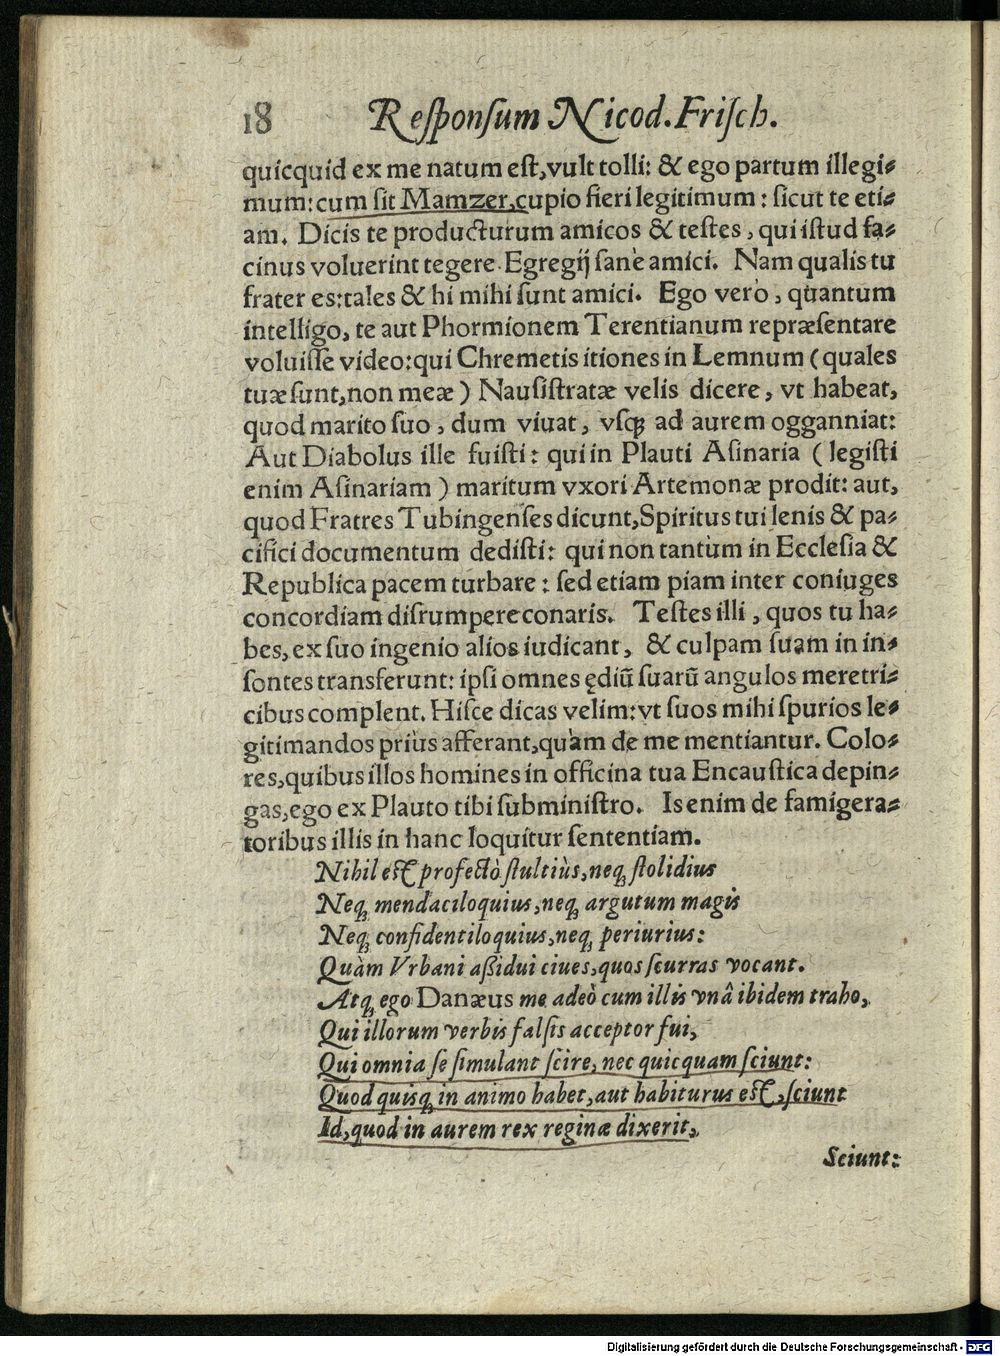 18 Responsum Nicod. Frisch.
quicquid ex me natum est, vult tolli: & ego partum illegi-
mum: cum sit Mamzer, cupio fieri legitimum: sicut te eti-
am. Dicis te producturum amicos & testes, qui istud fa-
cinus voluerint tegere. Egregij sanè amici. Nam qualis tu
frater es: tales & hi mihi sunt amici. Ego verò, quantum
intelligo, te aut Phormionem Terentianum repræsentare
voluisse video: qui Chremetis itiones in Lemnum (quales
tuæ sunt, non meæ) Nausistratæ velis dicere, vt habeat,
quod marito suo, dum viuat, vsq; ad aurem ogganniat:
Aut Diabolus ille fuisti: qui in Plauti Asinaria (legisti
enim Asinariam) maritum vxori Artemonæ prodit: aut,
quod Fratres Tubingenses dicunt, Spiritus tui lenis & pa-
cifici documentum dedisti: qui non tantùm in Ecclesia &
Republica pacem turbare: sed etiam piam inter coniuges
concordiam disrumpere conaris. Testes illi, quos tu ha-
bes, ex suo ingenio alios iudicant, & culpam suam in in-
sontes transferunt: ipsi omnes ędiũ suarũ angulos meretri-
cibus complent. Hisce dicas velim: vt suos mihi spurios le-
gitimandos priùs afferant, quàm de me mentiantur. Colo-
res, quibus illos homines in officina tua Encaustica depin-
gas, ego ex Plauto tibi subministro. Is enim de famigera-
toribus illis in hanc loquitur sententiam.
Nihil est profectò stultiùs, neq; stolidius
Neq; mendaciloquius, neq; argutum magis
Neq; confidentiloquius, neq; periurius:
Quàm Vrbani aßidui ciues, quos scurras vocant.
Atq; ego Danæus me adeò cum illis vnâ ibidem traho,
Qui illorum verbis falsis acceptor fui,
Qui omnia se simulant scire, nec quicquam sciunt:
Quod quisq; in animo habet, aut habiturus est, sciunt
Id, quod in aurem rex reginæ dixerit,
Sciunt:
Digitalisierung gefördert durch die Deutsche Forschungsgemeinschaft - DFG